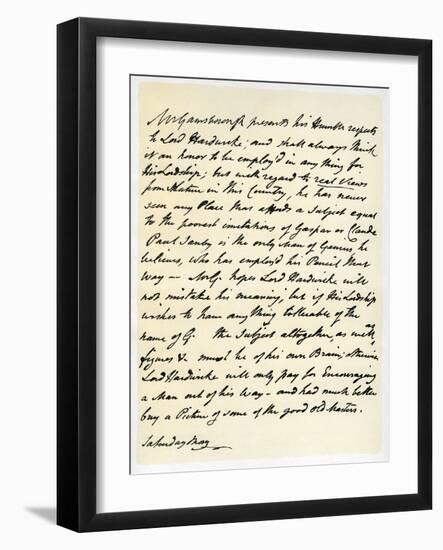 Mr Gainsborough presents his Humble respects
to Lord Hardwicke; and shall always think
it an honor to be employ'd in any thing for
His Lordship; but with regard to real Views
from Nature in this Country, he has never
seen any Place that affords a Subject equal
to the poorest imitations of Gaspar or Claude
Paul Sanby is the only Man of Genius, he
believes, who has employ'd his Pencil that
way — Mr G. hopes Lord Hardwicke will
not mistake his meaning, but if His Lordship
wishes to have any thing tollerable of the
name of G. the Subject altogether, as well as
figures &c. must be of his own Brain; otherwise
Lord Hardwicke will only pay for Encouraging
a Man out of his way — and had much better
buy a Picture of some of the good Old Masters.
Saturday Morg